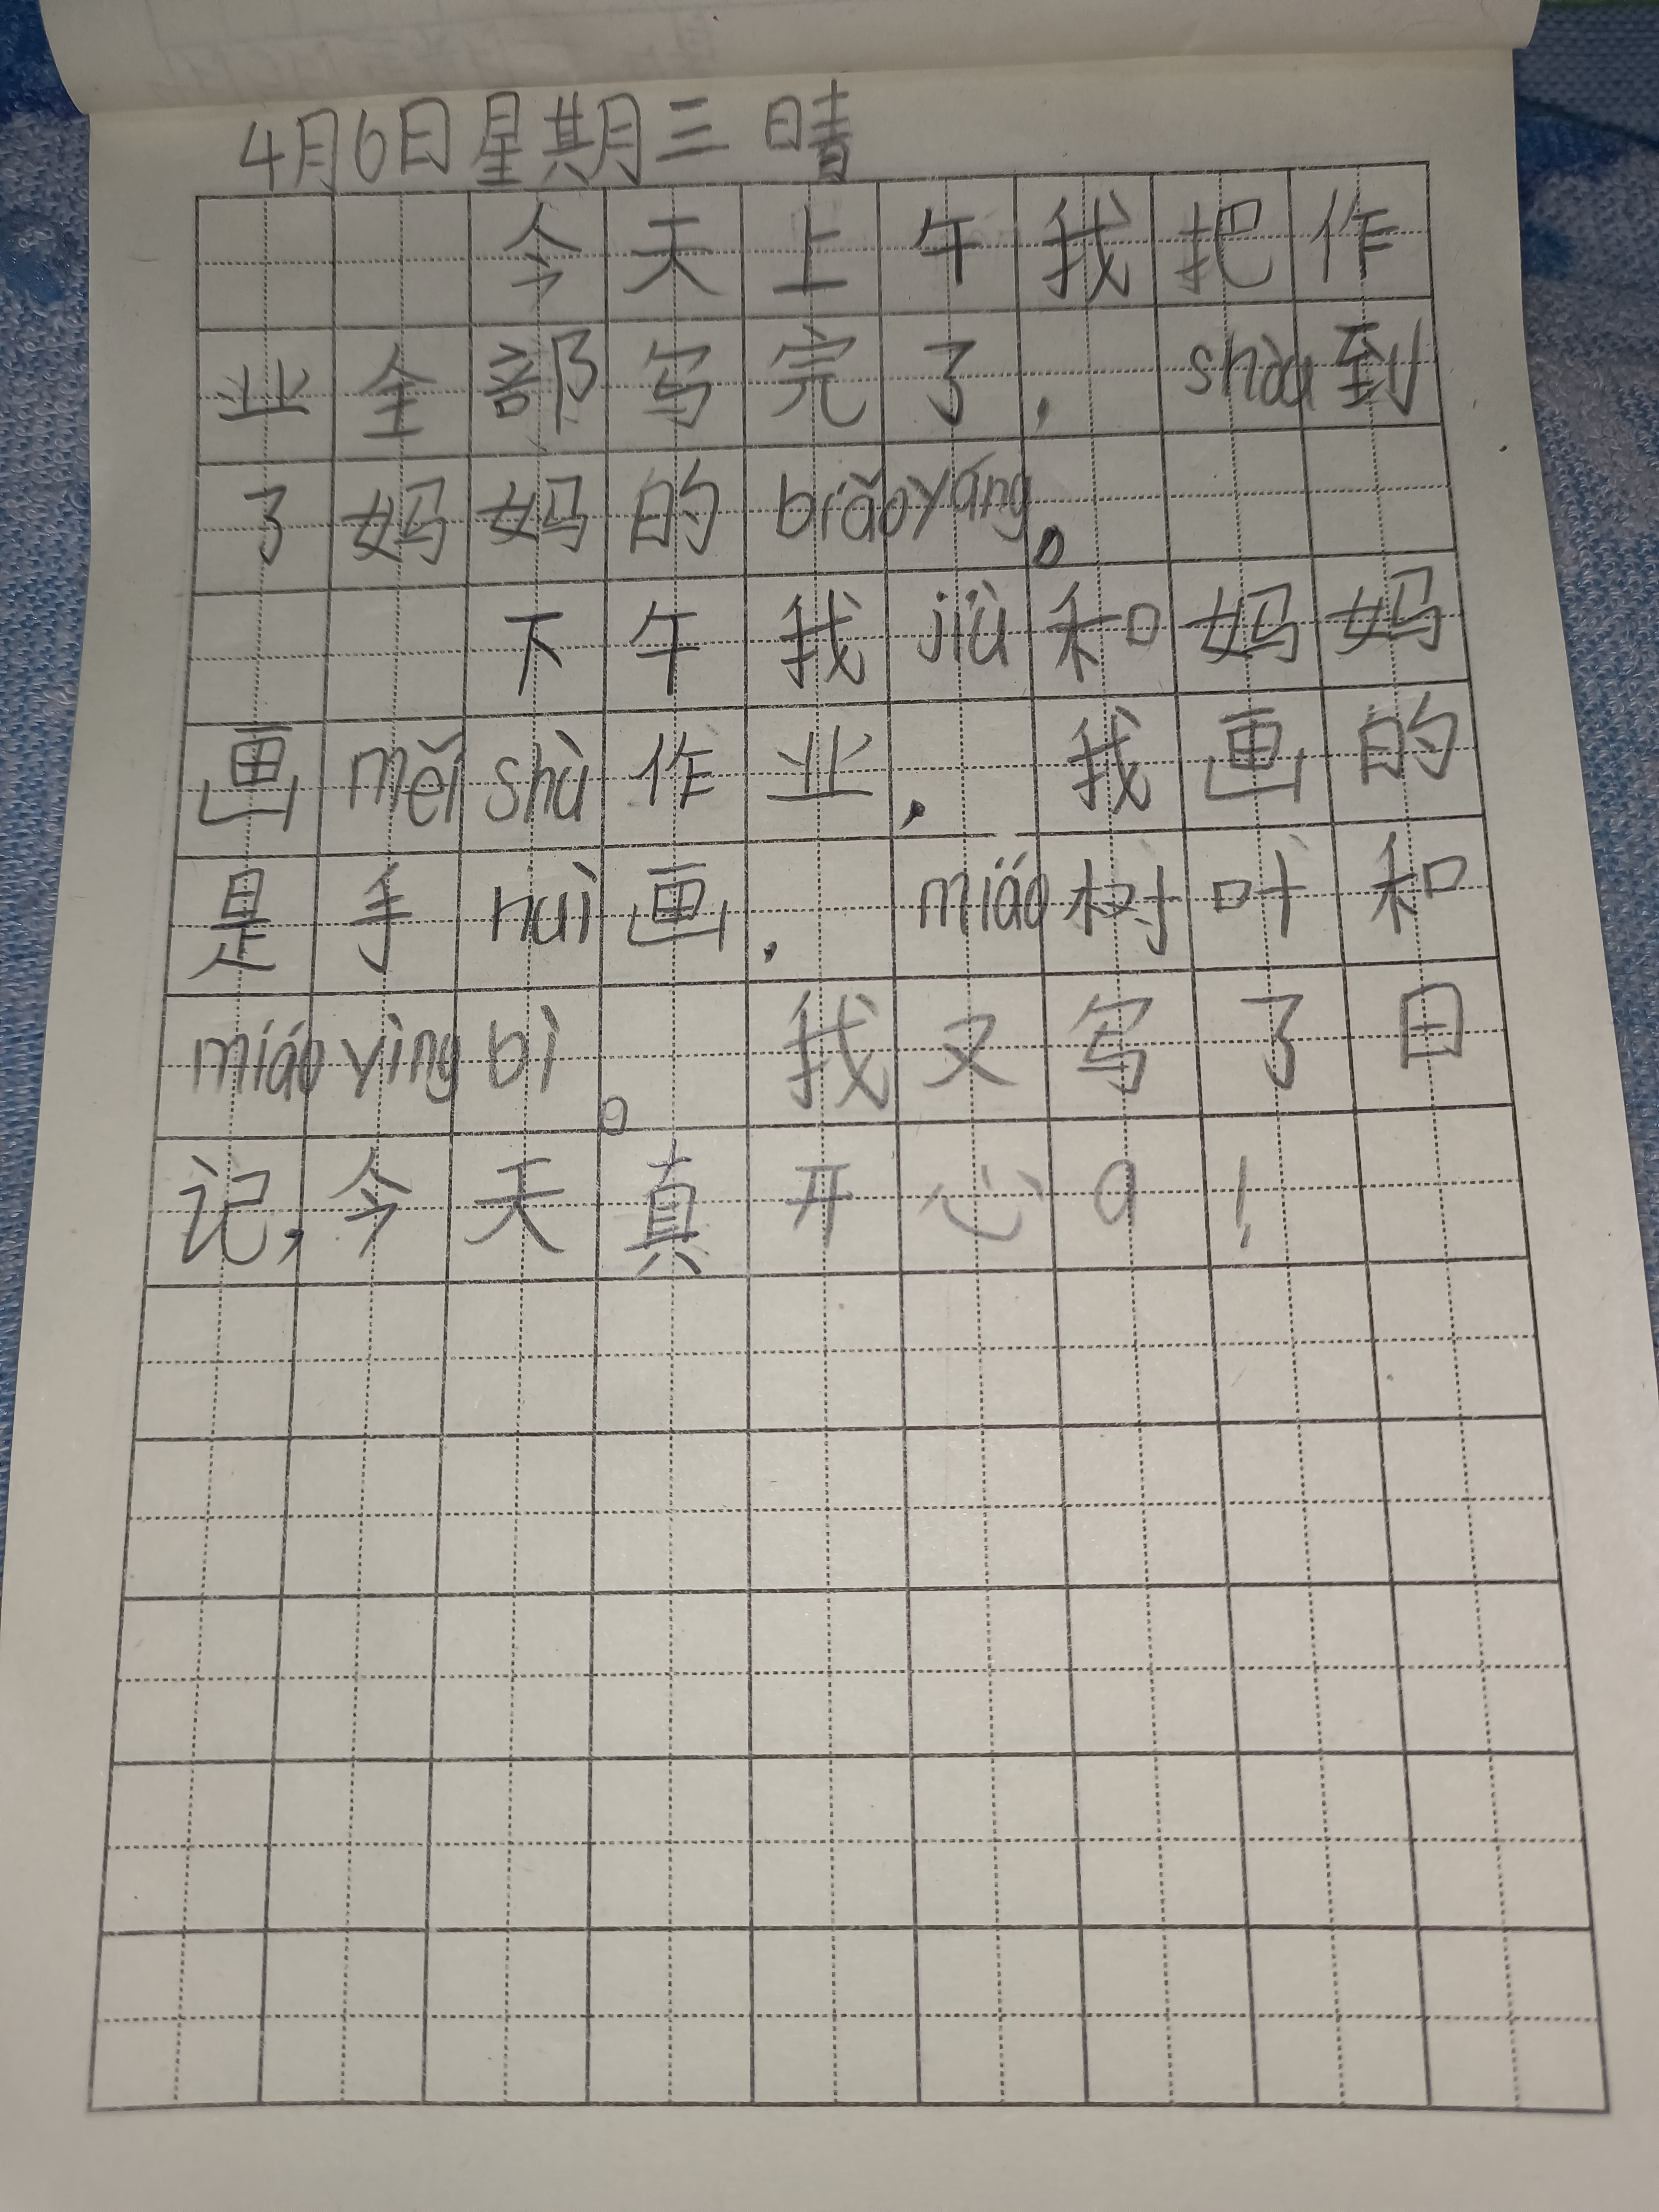 4月6日星期三 晴
今天上午我把作
业全部写完了, shòu到
了妈妈的biǎoyáng。
下午我jiù和妈妈
画měi shù作业, 我画的
是手huì画, miáo树叶和
miáo yìng bì。我又写了日
记,今天真开心a!